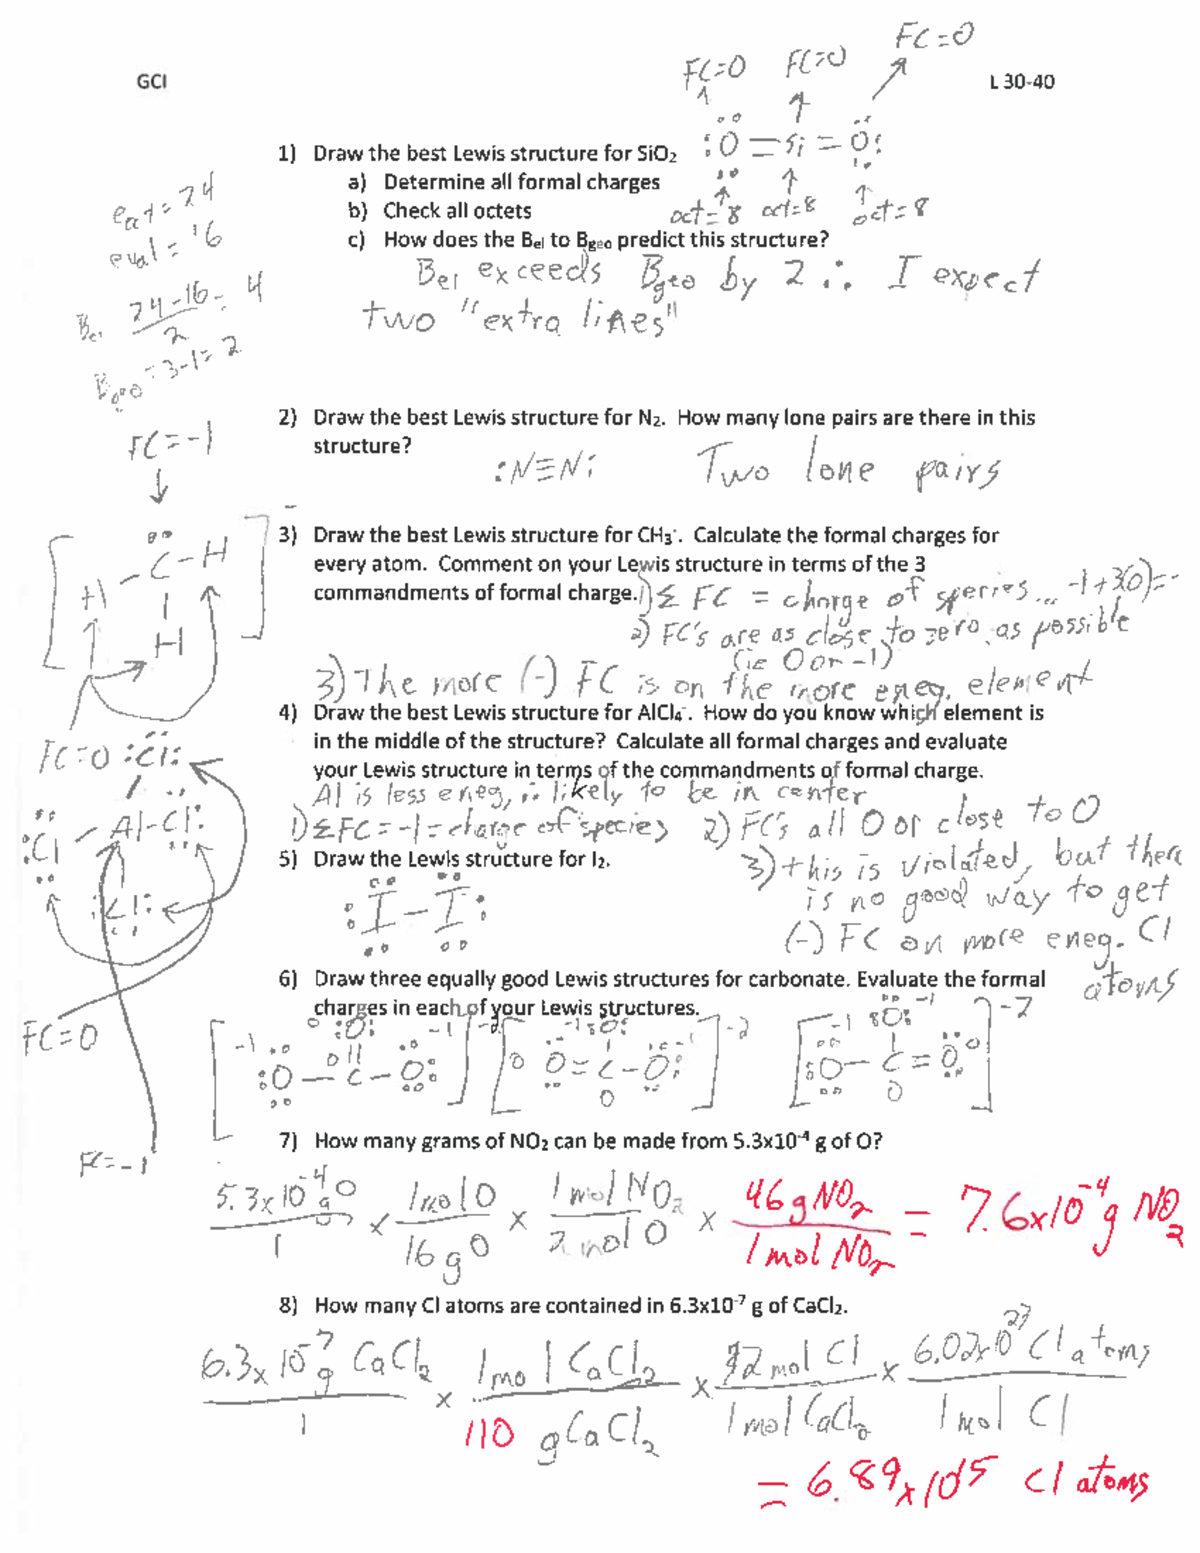 GCI
L 30-40
FC=0 FC=0 FC=0
1) Draw the best Lewis structure for SiO₂ :O=Si=O:
a) Determine all formal charges
b) Check all octets oct=8 oct=8 oct=8
c) How does the Bel to Bgeo predict this structure?
Bel exceeds Bgeo by 2 ∴ I expect
two "extra lines"
eoct = 24
eval = 16
Bel 24-16 = 4
2
Bgeo = 3-1 = 2
2) Draw the best Lewis structure for N₂. How many lone pairs are there in this
structure?
:N≡N: Two lone pairs
FC=-1
[H-C-H]-
H
FC=0
3) Draw the best Lewis structure for CH₃⁻. Calculate the formal charges for
every atom. Comment on your Lewis structure in terms of the 3
commandments of formal charge. 1) Σ FC = charge of species... -1+3(0)=-
2) FC's are as close to zero as possible
(ie 0 or -1)
3) The more (-) FC is on the more eneg. element
4) Draw the best Lewis structure for AlCl₄⁻. How do you know which element is
in the middle of the structure? Calculate all formal charges and evaluate
your Lewis structure in terms of the commandments of formal charge.
Al is less eneg, ∴ likely to be in center
1) ΣFC=-1=charge of species 2) FC's all 0 or close to 0
3) this is violated, but there
is no good way to get
(-) FC on more eneg. Cl
atoms
:Cl:
:Cl-Al-Cl:
:Cl:
FC=0
FC=-1
5) Draw the Lewis structure for I₂.
:I-I:
6) Draw three equally good Lewis structures for carbonate. Evaluate the formal
charges in each of your Lewis structures.
0 :O: -1 -2 -1 :O: -1 -2 -1 :O: -1 -2
-1 :O-C-O: 0 O=C-O: :O-C=O 0
0 0 0
7) How many grams of NO₂ can be made from 5.3x10⁻⁴ g of O?
5.3x10⁻⁴ g O x 1 mol O x 1 mol NO₂ x 46 g NO₂ = 7.6x10⁻⁴ g NO₂
1 16 g O 2 mol O 1 mol NO₂
8) How many Cl atoms are contained in 6.3x10⁻⁷ g of CaCl₂.
6.3x10⁻⁷ g CaCl₂ x 1 mol CaCl₂ x 2 mol Cl x 6.02x10²³ Cl atoms
1 110 g CaCl₂ 1 mol CaCl₂ 1 mol Cl
= 6.89x10¹⁵ Cl atoms